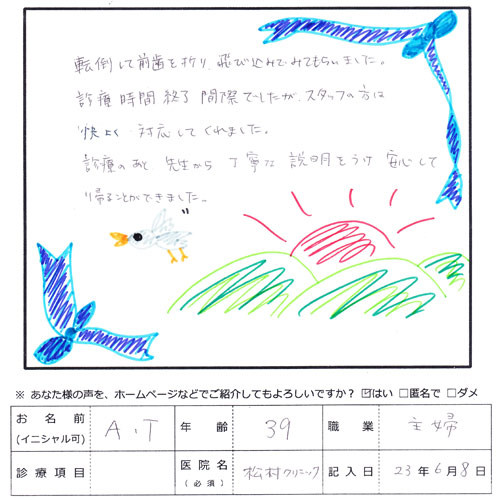 転倒して前歯を折り、飛び込みでみてもらいました。
診療時間終了間際でしたが、スタッフの方は
快よく 対応してくれました。
診療のあと、先生から 丁寧な 説明をうけ 安心して
帰ることができました。
※ あなた様の声を、ホームページなどでご紹介してもよろしいですか? ☑はい □匿名で □ダメ
お名前(イニシャル可) A.T 年齢 39 職業 主婦
診療項目 医院名(必須) 松村クリニック 記入日 23年6月8日